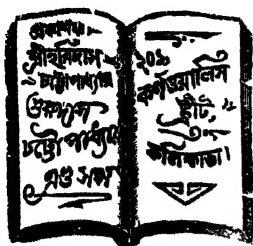 প্রকাশক:
শ্রীহরিদাস
চট্টোপাধ্যায়
গুরুদাস
চট্টোপাধ্যায়
এণ্ড সন্স
২০১
কর্ণওয়ালিস
ষ্ট্রীট,
কলিকাতা।